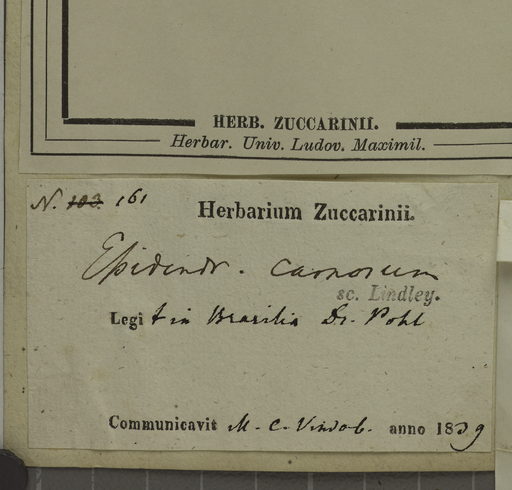 HERB. ZUCCARINII.
Herbar. Univ. Ludov. Maximil.
N. 103. 161
Herbarium Zuccarinii.
Epidendr.
sc. Lindley.
Legit in Brasilia Dr. Pohl
Communicavit M. C. Vindob. anno 1839